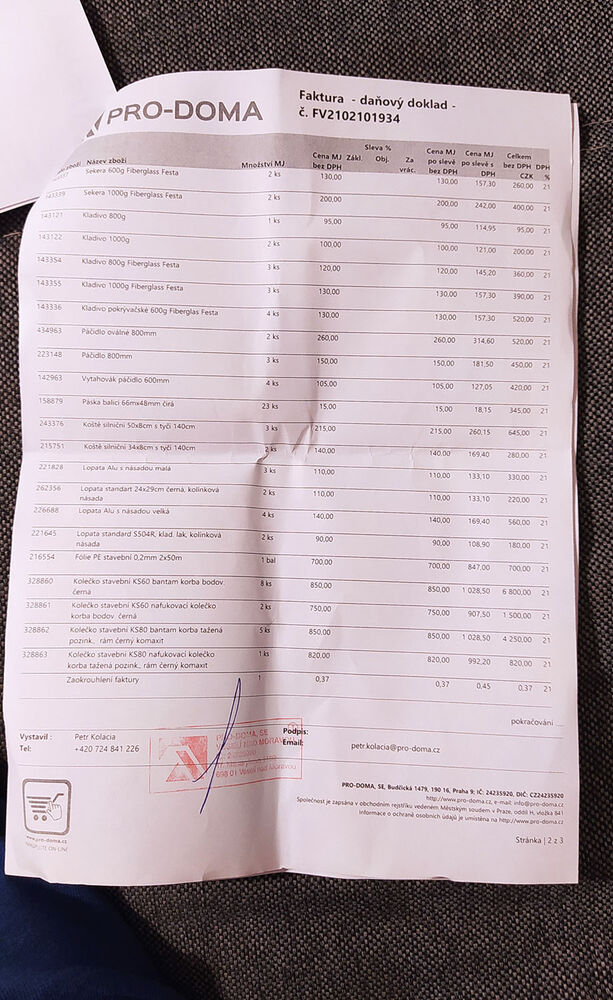 PRO-DOMA
Faktura - daňový doklad -
č. FV2102101934
zboží Název zboží Množství MJ Cena MJ bez DPH Sleva % Zákl. Obj. Za vrác. Cena MJ po slevě bez DPH Cena MJ po slevě s DPH Celkem bez DPH CZK DPH %
Sekera 600g Fiberglass Festa 2 ks 130,00 130,00 157,30 260,00 21
143339 Sekera 1000g Fiberglass Festa 2 ks 200,00 200,00 242,00 400,00 21
143121 Kladivo 800g 1 ks 95,00 95,00 114,95 95,00 21
143122 Kladivo 1000g 2 ks 100,00 100,00 121,00 200,00 21
143354 Kladivo 800g Fiberglass Festa 3 ks 120,00 120,00 145,20 360,00 21
143355 Kladivo 1000g Fiberglass Festa 3 ks 130,00 130,00 157,30 390,00 21
143336 Kladivo pokrývačské 600g Fiberglas Festa 4 ks 130,00 130,00 157,30 520,00 21
434963 Páčidlo oválné 800mm 2 ks 260,00 260,00 314,60 520,00 21
223148 Páčidlo 800mm 3 ks 150,00 150,00 181,50 450,00 21
142963 Vytahovák páčidlo 600mm 4 ks 105,00 105,00 127,05 420,00 21
158879 Páska balicí 66mx48mm čirá 23 ks 15,00 15,00 18,15 345,00 21
243376 Koště silniční 50x8cm s tyčí 140cm 3 ks 215,00 215,00 260,15 645,00 21
215751 Koště silniční 34x8cm s tyčí 140cm 2 ks 140,00 140,00 169,40 280,00 21
221828 Lopata Alu s násadou malá 3 ks 110,00 110,00 133,10 330,00 21
262356 Lopata standart 24x29cm černá, kolínková 2 ks 110,00 110,00 133,10 220,00 21
násada
226688 Lopata Alu s násadou velká 4 ks 140,00 140,00 169,40 560,00 21
221645 Lopata standard S504R, klad. lak, kolínková 2 ks 90,00 90,00 108,90 180,00 21
násada
216554 Fólie PE stavební 0,2mm 2x50m 1 bal 700,00 700,00 847,00 700,00 21
328860 Kolečko stavební KS60 bantam korba bodov. 8 ks 850,00 850,00 1 028,50 6 800,00 21
černá
328861 Kolečko stavební KS60 nafukovací kolečko 2 ks 750,00 750,00 907,50 1 500,00 21
korba bodov. černá
328862 Kolečko stavební KS80 bantam korba tažená 5 ks 850,00 850,00 1 028,50 4 250,00 21
pozink., rám černý komaxit
328863 Kolečko stavební KS80 nafukovací kolečko 1 ks 820,00 820,00 992,20 820,00 21
korba tažená pozink., rám černý komaxit
Zaokrouhlení faktury 1 0,37 0,37 0,45 0,37 21
pokračování ...
Vystavil : Petr Kolacia Podpis:
Tel: +420 724 841 226 Email: petr.kolacia@pro-doma.cz
PRO-DOMA, SE
698 01 Veselí nad Moravou
www.pro-doma.cz
NAKUPUJTE ON-LINE
PRO-DOMA, SE, Budčická 1479, 190 16, Praha 9; IČ: 24235920, DIČ: CZ24235920
http://www.pro-doma.cz, e-mail: info@pro-doma.cz
Společnost je zapsána v obchodním rejstříku vedeném Městským soudem v Praze, oddíl H, vložka 841
Informace o ochraně osobních údajů je umístěna na http://www.pro-doma.cz
Stránka | 2 z 3